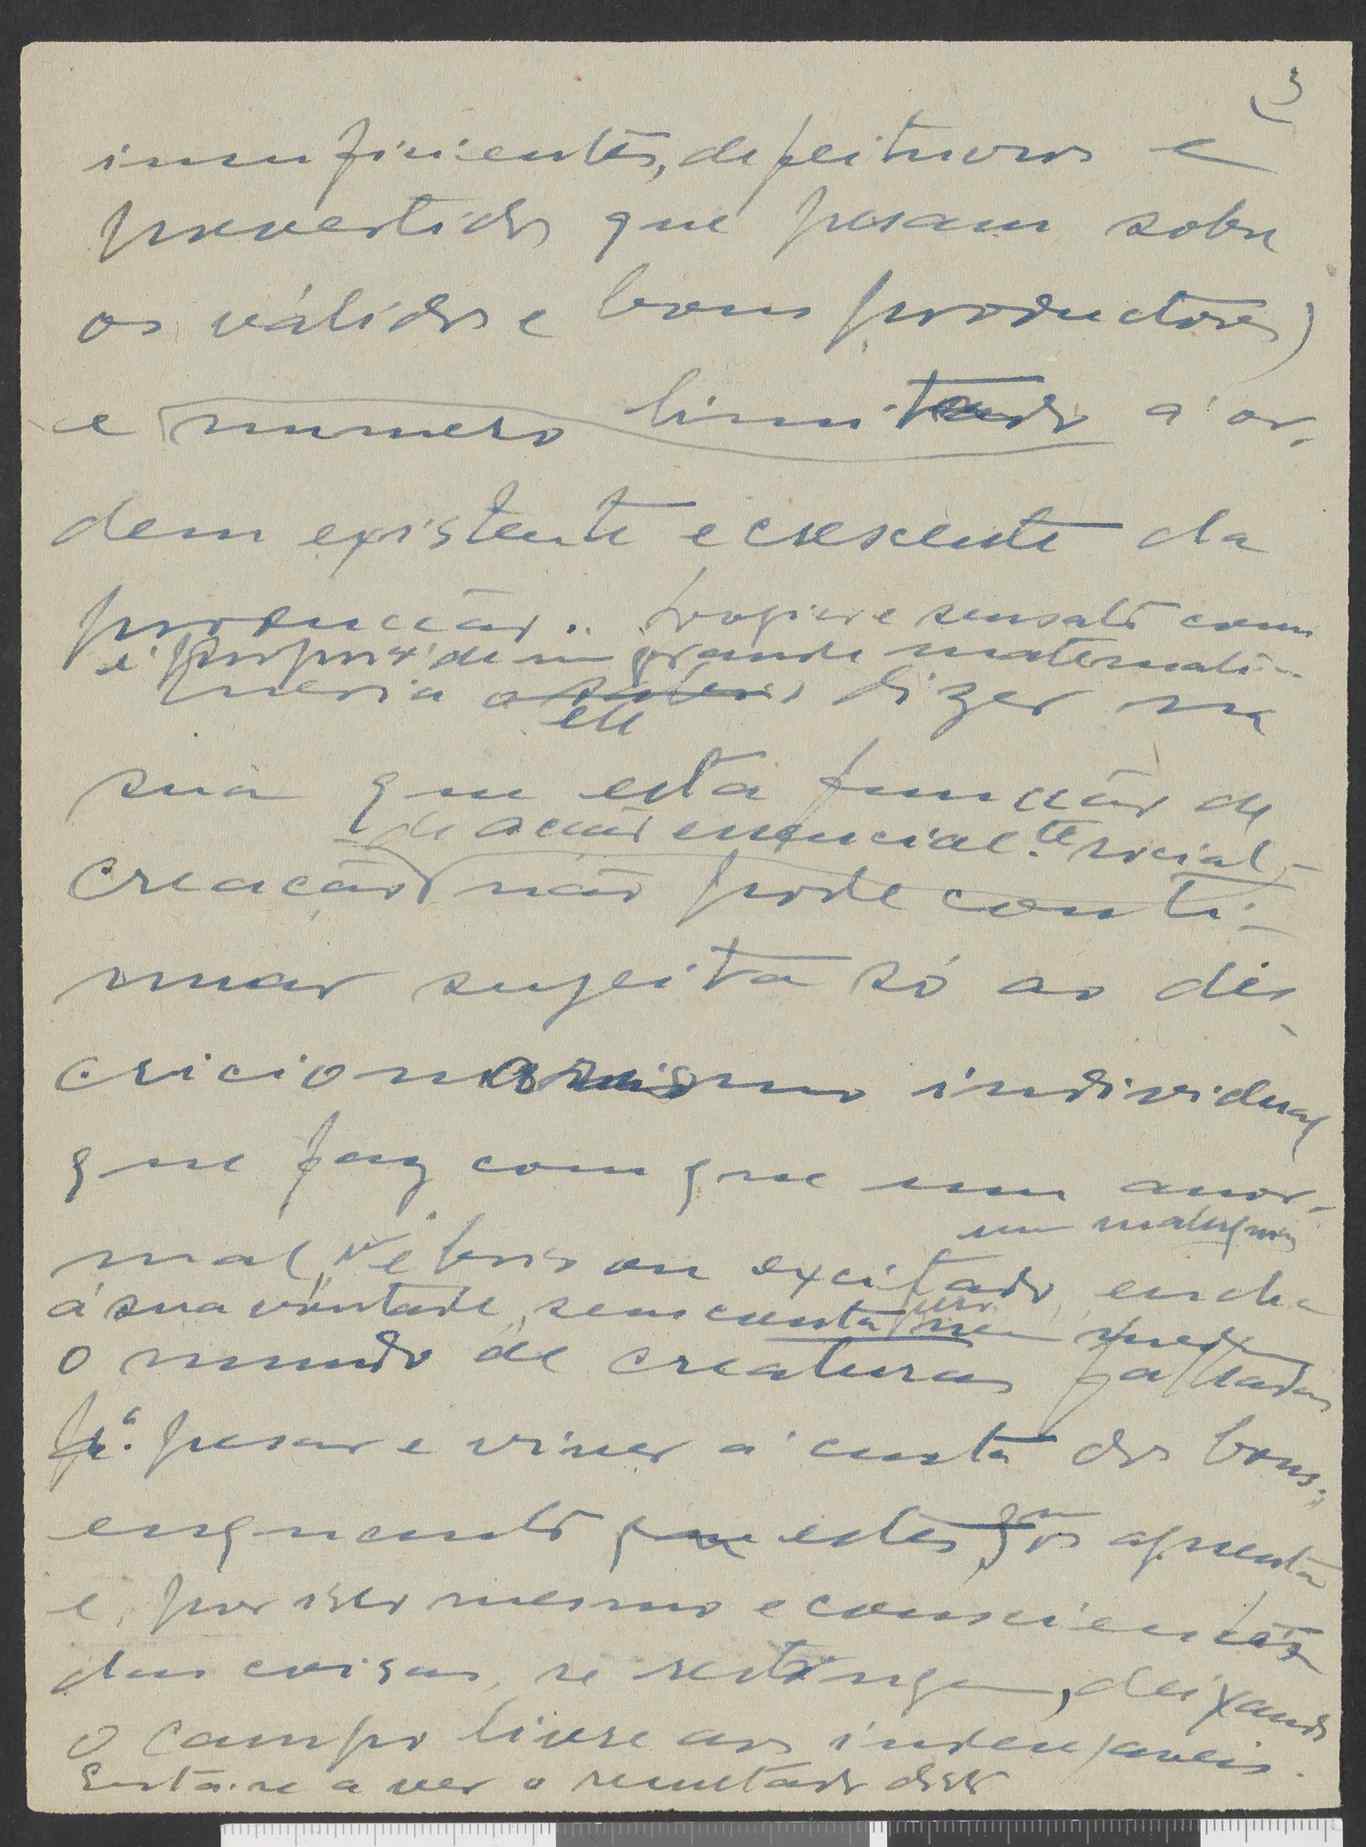 3
insuficientes, defeituosos e
prevertidos que pesam sobre
os válidos e bons productores)
e numero limitado á or-
dem existente e crescente da
producção.. logica e sensato como
é proprio de um grande matemati-
queria elle dizer na
sua que esta funcção de
de acção essencial.te social,
creação não pode conti-
nuar sugeita só ao dis-
cricionarismo individual
que faz com que um anor-
um maluquinho
mal, ébrio ou excitado encha
á sua vontade, sem conta nem
o mundo de creaturas falhadas
pr.ª pesar e viver á custa dos bons;
enquanto que estes, aguenta
e, por isso mesmo e conscientes
das coisas, se restringem, deixando
o campo livre aos indesejaveis.
Custa-se a ver o resultado disto